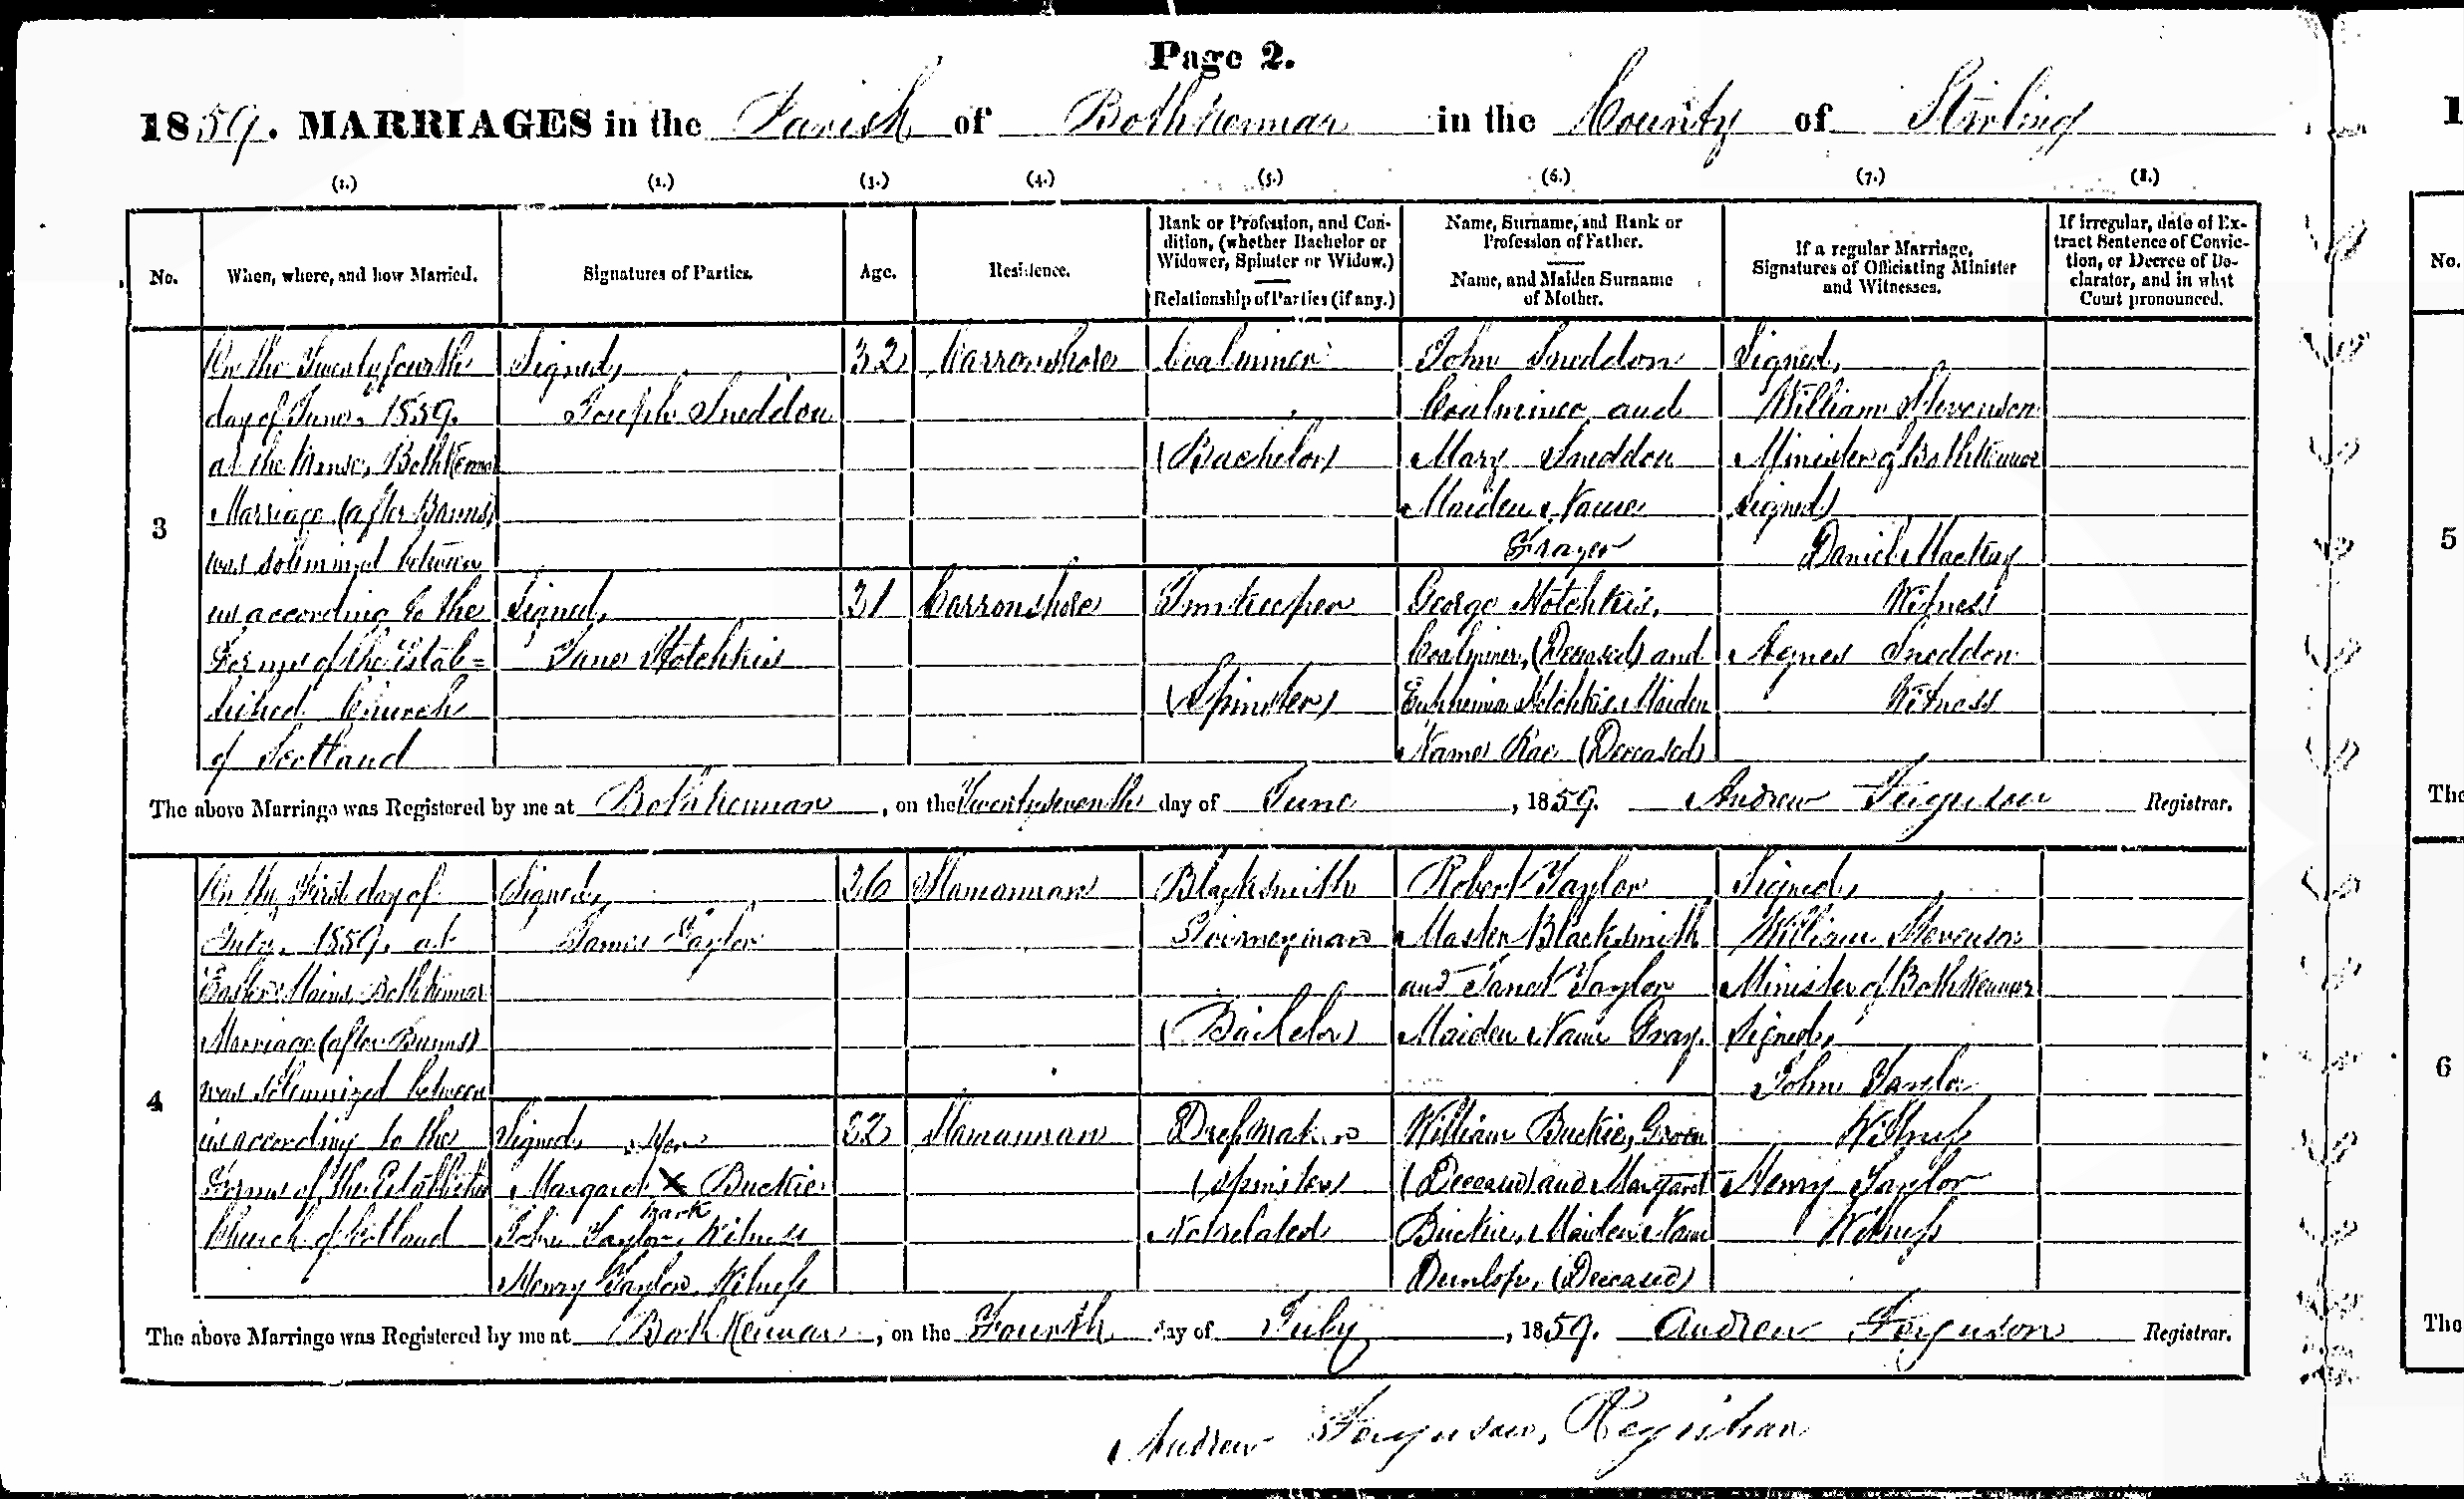 Page 2.
1859. MARRIAGES in the Parish of Bothkennar in the County of Stirling
(1.) (2.) (3.) (4.) (5.) (6.) (7.) (8.)
No.
When, where, and how Married.
Signatures of Parties.
Age.
Residence.
Rank or Profession, and Con-
dition, (whether Bachelor or
Widower, Spinster or Widow.)
Relationship of Parties (if any.)
Name, Surname, and Rank or
Profession of Father.
Name, and Maiden Surname
of Mother.
If a regular Marriage,
Signatures of Officiating Minister
and Witnesses.
If irregular, date of Ex-
tract Sentence of Convic-
tion, or Decree of De-
clarator, and in what
Court pronounced.
3
On the Twenty fourth
day of June, 1859.
at the Manse, Bothkennar
Marriage (after Banns)
was solemnized between
us according to the
Forms of the Estab=
lished Church
of Scotland
Signed,
Joseph Sneddon
Signed,
Jane Hotchkis
32
31
Carronshore
Carronshore
Coalminer
(Bachelor)
Innkeeper
(Spinster)
John Sneddon
Coalminer and
Mary Sneddon
Maiden Name
Frazer
George Hotchkis,
Coalminer, (Deceased) and
Euphemia Hotchkis Maiden
Name Rae (Deceased)
Signed,
William Stevenson
Minister of Bothkennar
Signed
Daniel Mackay
Witness
Agnes Sneddon
Witness
The above Marriage was Registered by me at Bothkennar, on the Twenty seventh day of June, 1859. Andrew Ferguson Registrar.
4
On the First day of
July, 1859. at
Easter Mains Bothkennar
Marriage (after Banns)
was solemnized between
us according to the
Forms of the Established
Church of Scotland
Signed,
James Taylor
Signed, Her
Margaret X Buckie
mark
John Taylor, Witness
Henry Taylor, Witness
26
32
Slamannan
Slamannan
Blacksmith
Journeyman
(Bachelor)
Dressmaker
(Spinster)
Not related
Robert Taylor
Master Blacksmith
and Janet Taylor
Maiden Name Gray.
William Buckie,
(Deceased) and Margaret
Buckie, Maiden Name
Dunlop, (Deceased)
Signed,
William Stevenson
Minister of Bothkennar
Signed,
John Taylor
Witness
Henry Taylor
Witness
The above Marriage was Registered by me at Bothkennar, on the Fourth day of July, 1859. Andrew Ferguson Registrar.
Andrew Ferguson, Registrar
1
No.
5
The
6
The